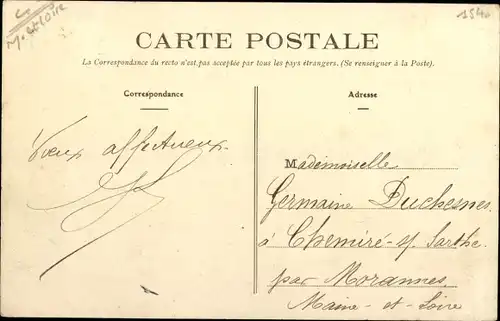 M. et Loire
1540
CARTE POSTALE
La Correspondance du recto n'est pas acceptée par tous les pays étrangers. (Se renseigner à la Poste).
Correspondance
Voeux affectueux.
Adresse
Mademoiselle
Germaine Duchesnes
à Chemiré-s/ Sarthe
par Morannes
Maine-et-Loire